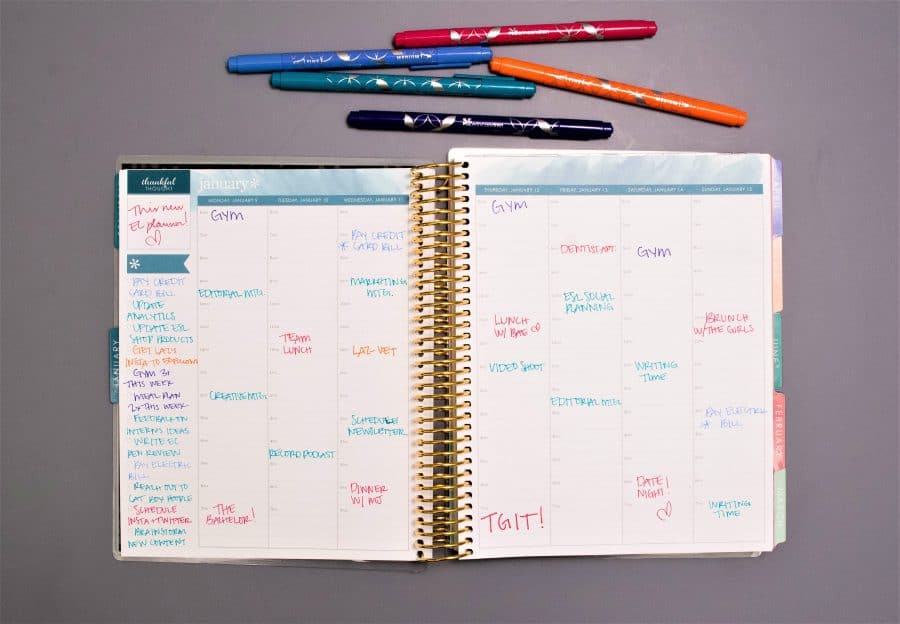 thankful
THOUGHT
This new
EC planner!
PAY CREDIT
CARD BILL
UPDATE
ANALYTICS
UPDATE ESL
SHOP PRODUCTS
GET LAZ'S
INSTA TO
GYM 3x
THIS WEEK
MEAL PLAN
2x THIS WEEK
FEEDBACK ON
INTERNS IDEAS
WRITE EC
PEN REVIEW
PAY ELECTRIC
BILL
REACH OUT TO
CAT BOY
SCHEDULE
INSTA + TWITTER
BRAINSTORM
NEW CONTENT
january*
MONDAY, JANUARY 9
GYM
EDITORIAL MTG.
CREATIVE MTG.
THE
BACHELOR!
TUESDAY, JANUARY 10
TEAM
LUNCH
RECORD PODCAST
WEDNESDAY, JANUARY 11
PAY CREDIT
* CARD BILL
MARKETING
MTG.
LAZ-VET
SCHEDULE
NEWSLETTER
DINNER
W/ MJ
THURSDAY, JANUARY 12
GYM
LUNCH
W/ BAE
VIDEO SHOOT
TGIT!
FRIDAY, JANUARY 13
DENTIST APT.
ESL SOCIAL
PLANNING
EDITORIAL MTG.
SATURDAY, JANUARY 14
GYM
WRITING
TIME
DATE
NIGHT!
SUNDAY, JANUARY 15
BRUNCH
W/ THE GIRLS
PAY ELECTRIC
* BILL
WRITING
TIME
JANUARY
JUNE
FEBRUARY
MARCH